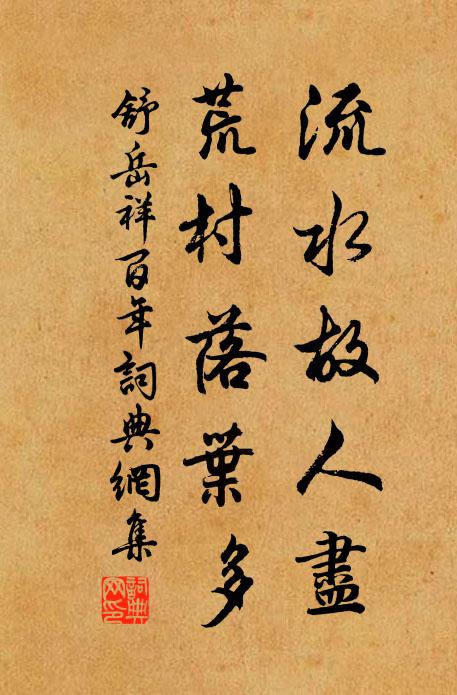 流水故人盡
荒村落葉多
舒岳祥百年詞典網集
詞典網印